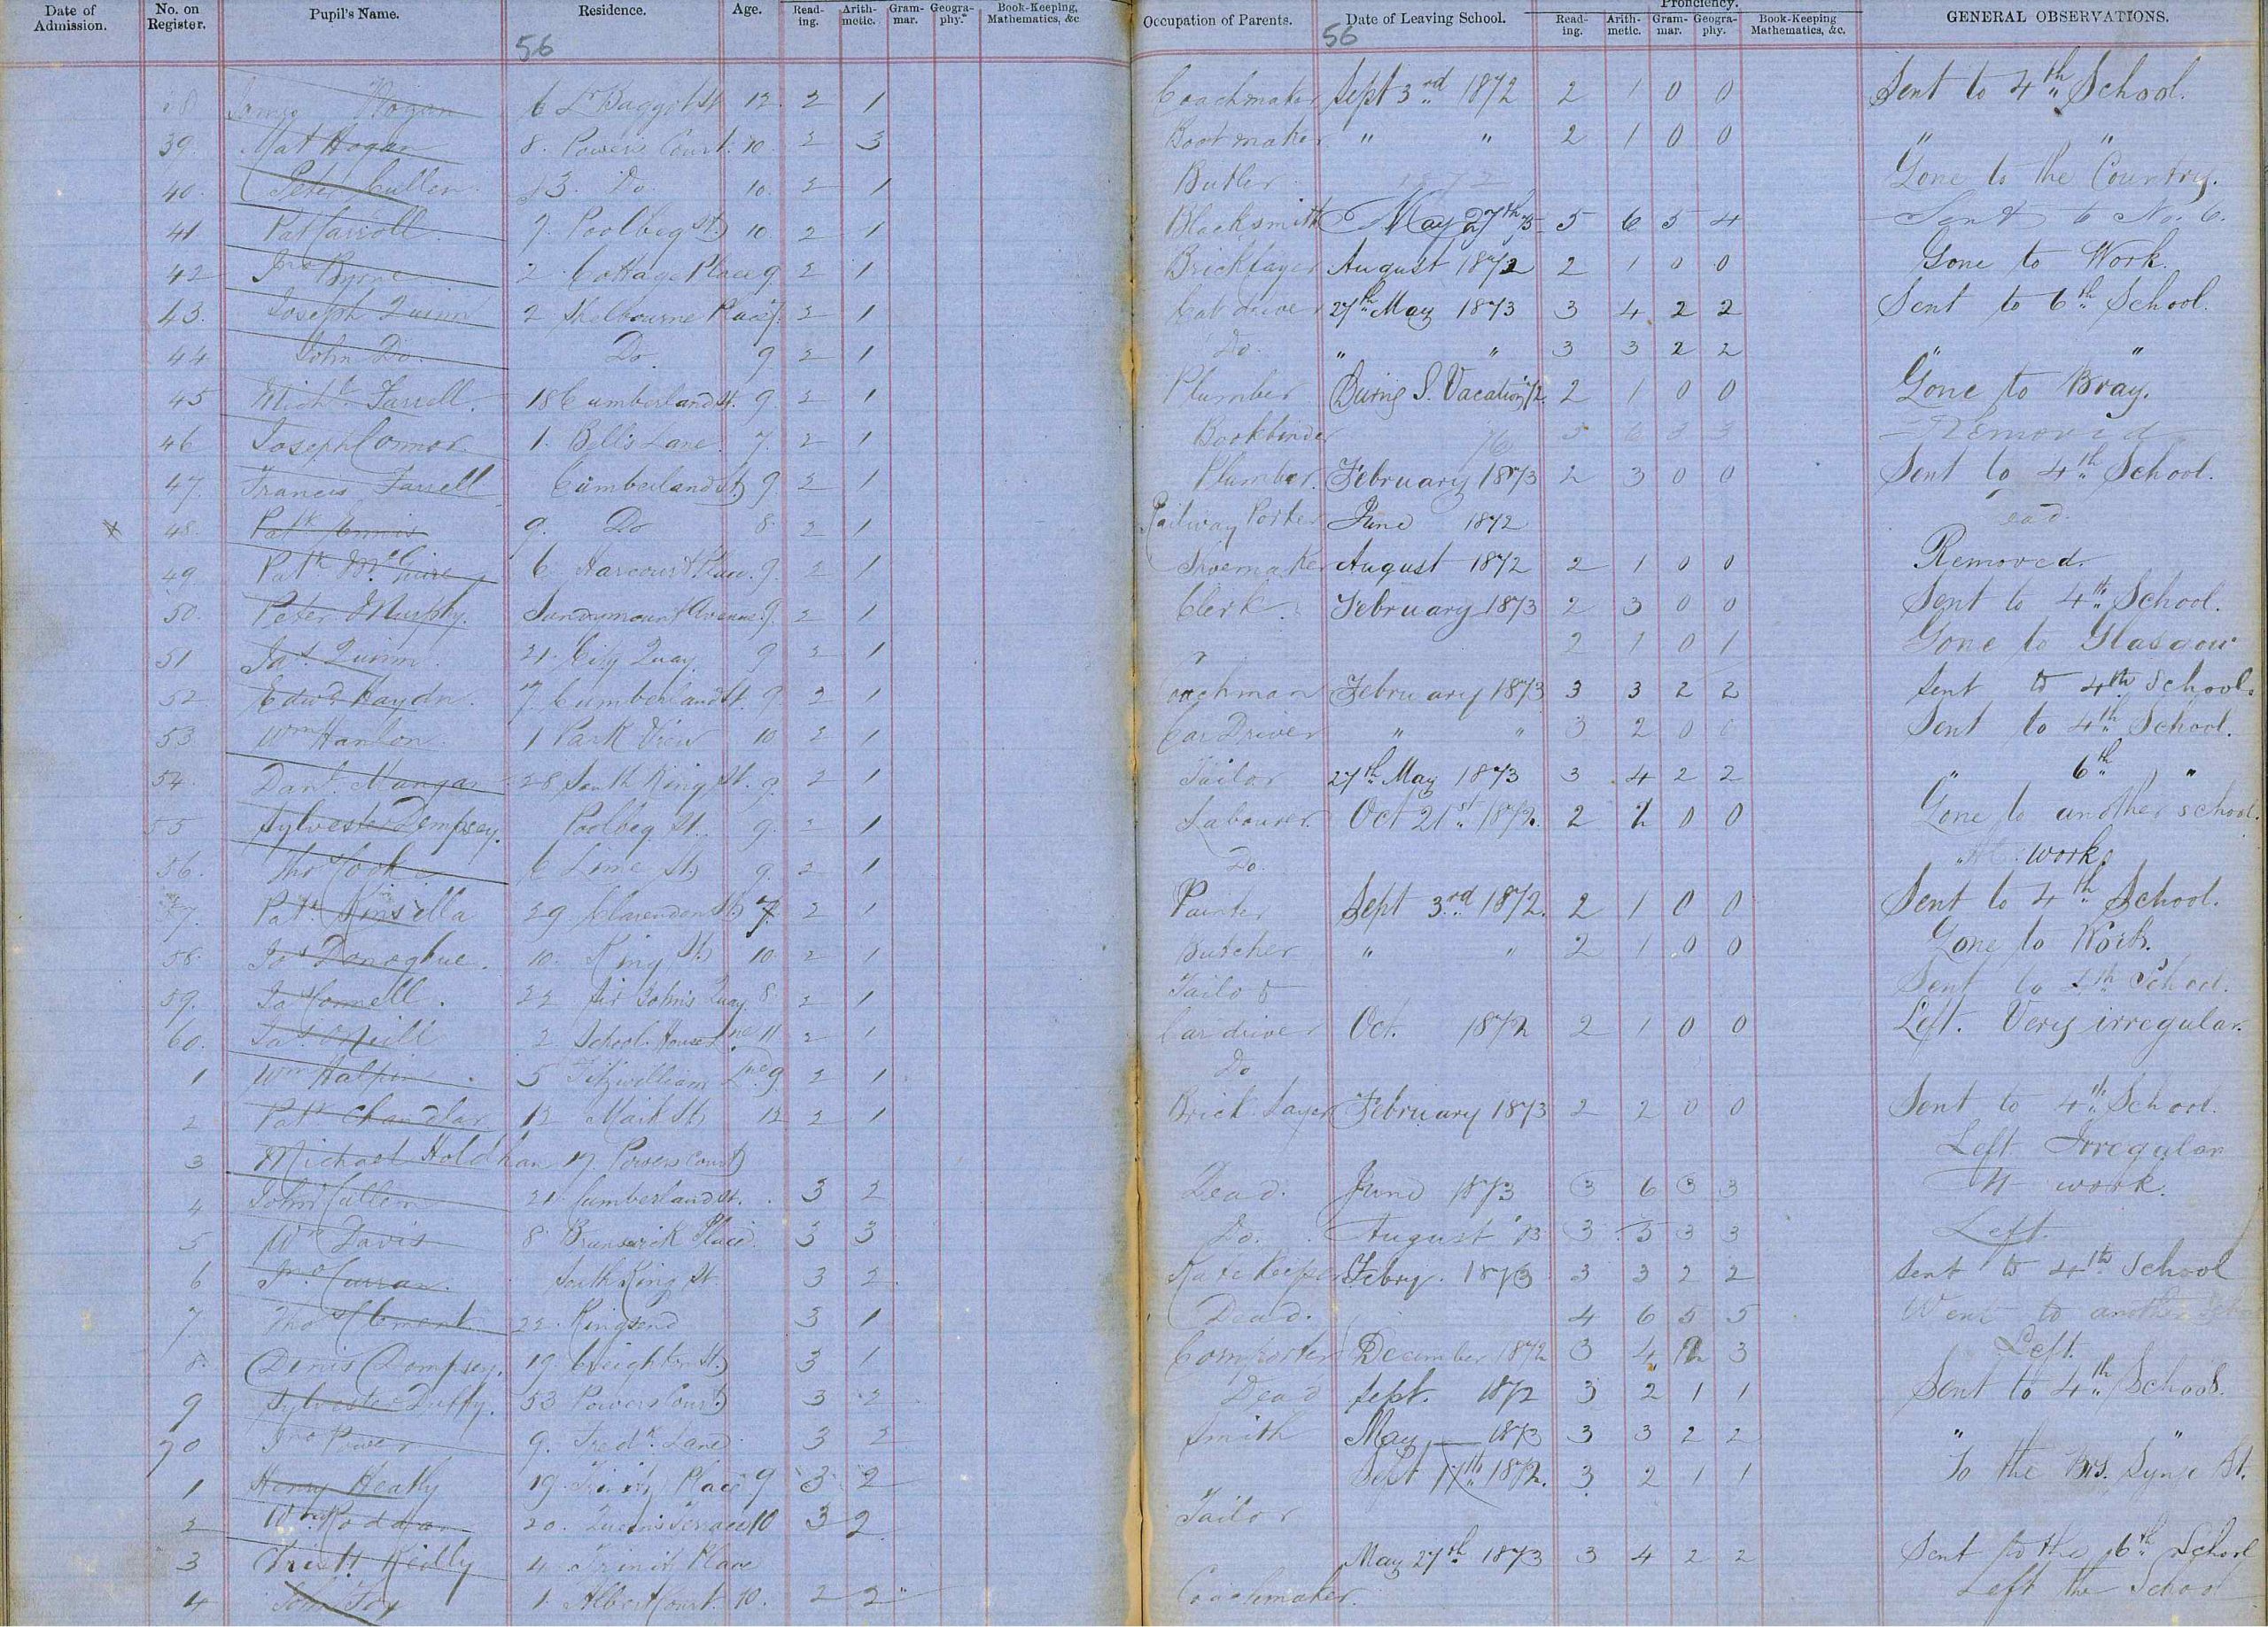 Date of Admission. No. on Register. Pupil's Name. Residence. Age. Reading. Arithmetic. Grammar. Geography. Book-Keeping, Mathematics, &c Occupation of Parents. Date of Leaving School. Proficiency. Reading. Arithmetic. Grammar. Geography. Book-Keeping Mathematics, &c. GENERAL OBSERVATIONS.
56 56
38 James Hogan 6 Lr Baggot St 12. 2 1 Coachmaker Sept 3rd 1872 2 1 0 0 Sent to 4th School.
39. Mat Hogan 8. Powers Court. 10. 2 3 Bootmaker " " 2 1 0 0 " "
40. Peter Cullen 13. Do. 10. 2 1 Butler 1872 Gone to the Country.
41 Pat Carroll. 7. Poolbeg St. 10. 2 1 Blacksmith May 27th 75 5 6 5 4 Sent to No. 6.
42 Jno Byrne 2 Cottage Place 9. 2 1 Bricklayer August 1872 2 1 0 0 Gone to Work.
43. Joseph Quinn 2 Shelbourne Place 7. 2 1 Cab driver 27th May 1873 3 4 2 2 Sent to 6th School.
44 John Do. Do. 9. 2 1 Do. " " 3 3 2 2 " "
45 Michl Farrell. 18 Cumberland St. 9. 2 1 Plumber During S. Vacation 72. 2 1 0 0 Gone to Bray.
46 Joseph Connor. 1. Bell's Lane. 7. 2 1 Bookbinder 76 5 6 3 3 Removed
47. Francis Farrell Cumberland St 9 2 1 Plumber. February 1873 2 3 0 0 Sent to 4th School.
x 48. Patk Ennis 9. Do 8. 2 1 Railway Porter June 1872 Dead
49 Patk McGuire 6 Harcourt Place. 9. 2 1 Shoemaker August 1872 2 1 0 0 Removed.
50. Peter Murphy. Sandymount Avenue. 9. 2 1 Clerk. February 1873 2 3 0 0 Sent to 4th School.
51 Jas. Quinn. 21. City Quay 9 2 1 " 2 1 0 1 Gone to Glasgow
52 Edwd Haydn. 7. Cumberland St. 9. 2 1 Coachman February 1873 3 3 2 2 Sent to 4th School.
53. Wm Hanlon. 1 Park View 10 2 1 Car Driver " " 3 2 0 0 Sent to 4th School.
54. Danl. Mangan 28 South King St. 9. 2 1 Tailor 27th May 1873 3 4 2 2 " 6th "
55 Sylvester Dempsey. Poolbeg St. 9. 2 1 Labourer. Oct 21st 1872. 2 1 0 0 Gone to another school.
56. Thos Cooke 6 Lime St. 9. 2 1 Do. " At work.
7. Patk Kinsella 29 Clarendon St 7. 2 1 Painter Sept 3rd 1872. 2 1 0 0 Sent to 4th School.
58. Jas Donoghue. 10. King St. 10. 2 1 Butcher " " 2 1 0 0 Gone to Work.
59. Jas Connell. 22 Sir John's Quay. 8. 2 1 Tailor Sent to 4th School.
60. Jas. O'Neill 2 School House Lne 11 2 1 Car driver Oct. 1872 2 1 0 0 Left. Very irregular.
1 Wm Halpin. 5 Fitzwilliam Lne 9. 2 1. Do
2 Patk Chandlar 12 Mark St. 12 2 1 Brick Layer February 1873 2 2 0 0 Sent to 4th School.
3 Michael Holdhan 17 Powers Court Left Irregular
4 John Cullen 21 Cumberland St. 3 2 Dead. June 1873 3 6 3 3 At work.
5 Wm Davis 8. Brunswick Place. 3 3 Do. August '73 3 5 3 3 Left.
6 Jno Curran. South King St. 3 2. Febry. 1873 3 3 2 2 Sent to 4th School
7. Thos Clement 22. Ringsend 3 1 Dead. 4 6 5 5 Went to another
8. Denis Dempsey. 19. Creighton St. 3 1 Cornporter December 1872 3 4 2 3 Left.
9 Sylvester Duffy. 53 Powers Court 3 2 Dead Sept. 1872 3 2 1 1 Sent to 4th School.
70 Jno Power 9. Fredk. Lane 3 2 Smith May — 1873 3 3 2 2 " "
1 Henry Heatly 19. Trinity Place 9 3 2 Sept 17th 1872. 3 2 1 1 To the Brs. Synge St.
2 Wm Roddan 20. Queen's Terrace 10 3 2 Tailor
3 Christr. Reilly 4. Trinity Place May 27th 1873 3 4 2 2 Sent to the 6th School
4 John Fox 1. Albert Court. 10. 2 2 " Coachmaker. Left the School